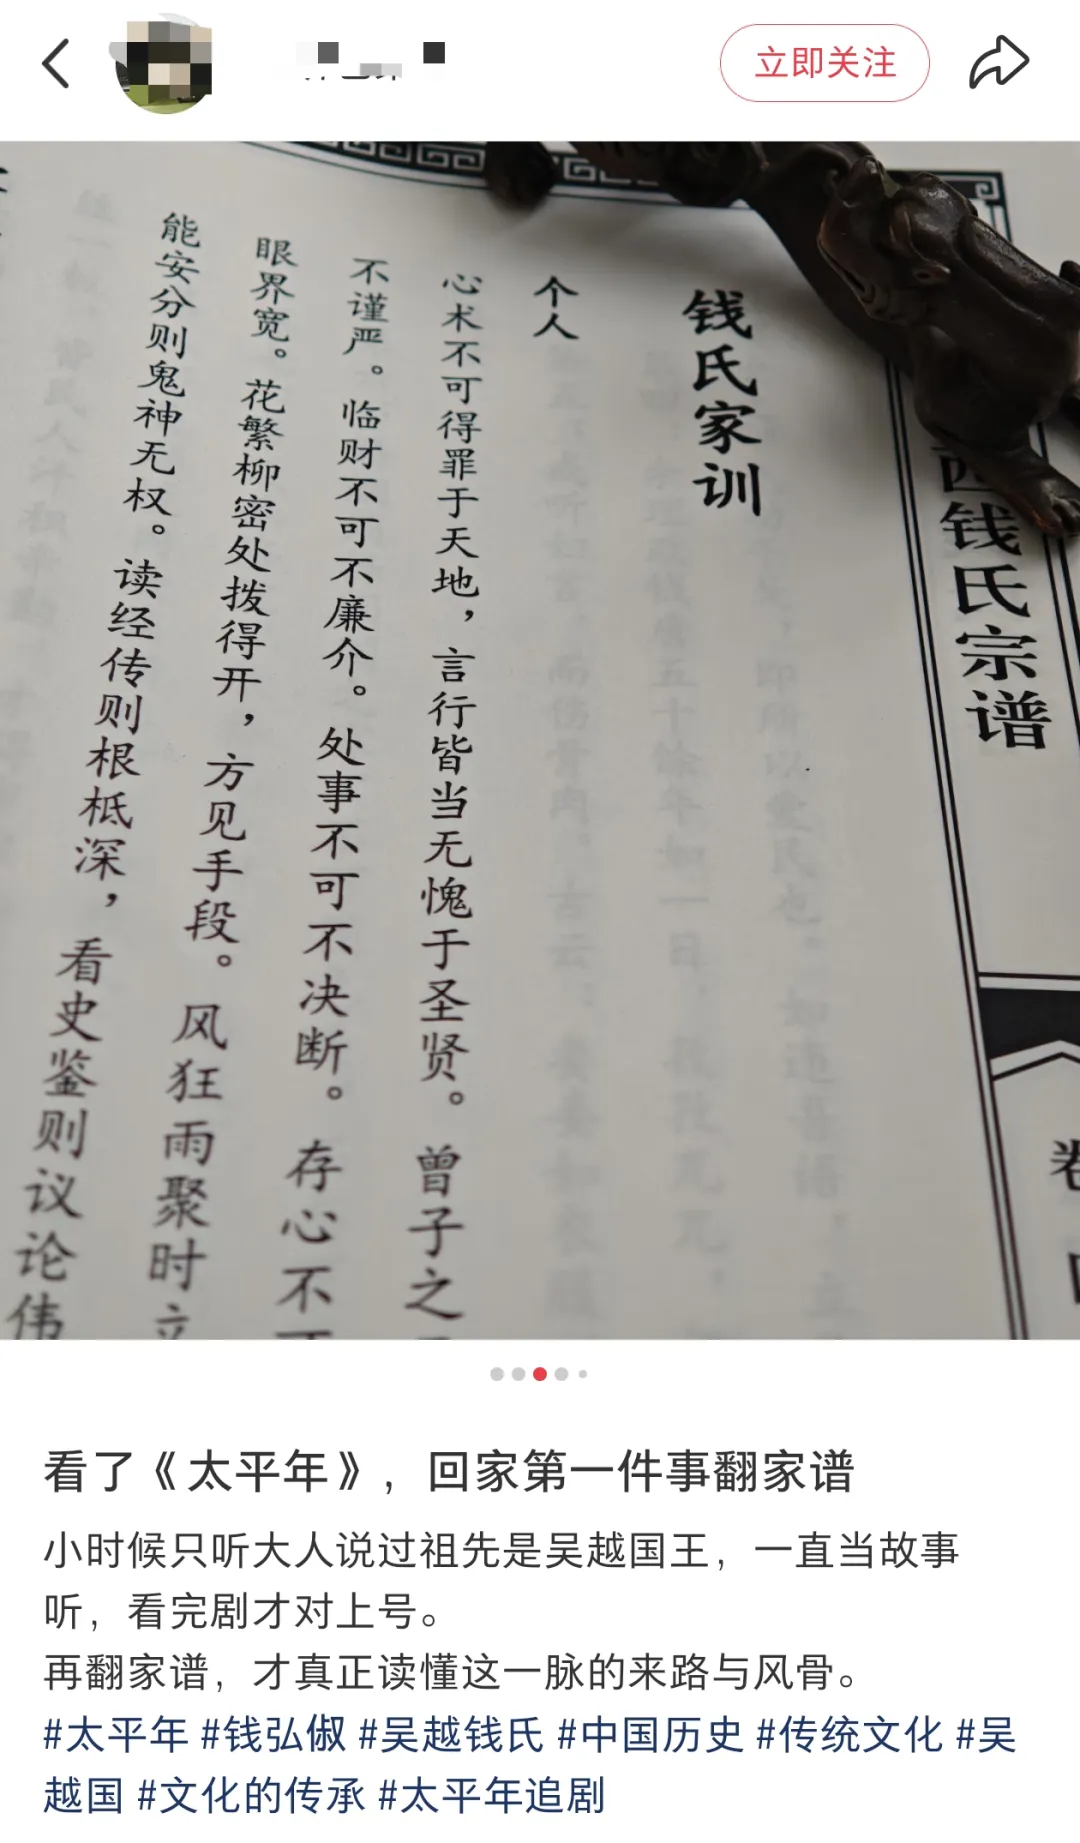 立即关注
钱氏宗谱
钱氏家训
个人
心术不可得罪于天地，言行皆当无愧于圣贤。曾子之
不谨严。临财不可不廉介。处事不可不决断。存心不
眼界宽。花繁柳密处拨得开，方见手段。风狂雨聚时立
能安分则鬼神无权。读经传则根柢深，看史鉴则议论伟
看了《太平年》，回家第一件事翻家谱
小时候只听大人说过祖先是吴越国王，一直当故事
听，看完剧才对上号。
再翻家谱，才真正读懂这一脉的来路与风骨。
#太平年 #钱弘俶 #吴越钱氏 #中国历史 #传统文化 #吴
越国 #文化的传承 #太平年追剧